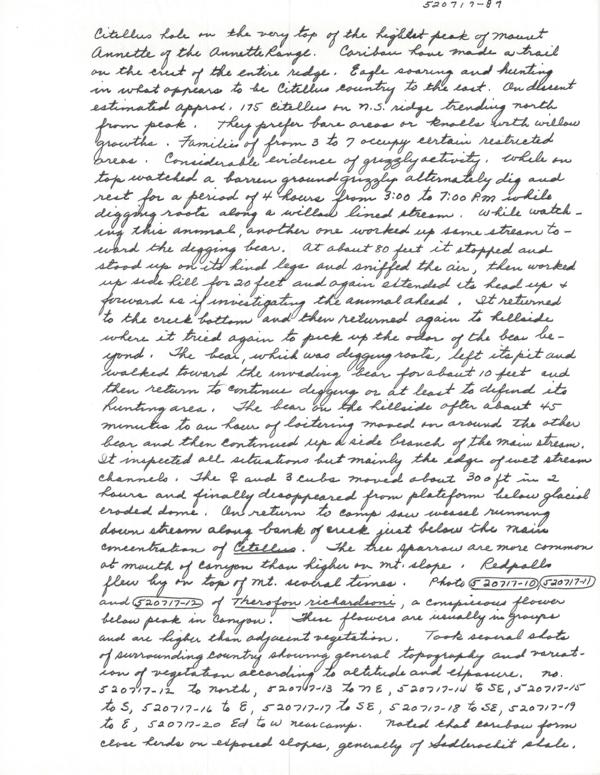 520717-87
Citellus hole on the very top of the highest peak of mount
Annette of the Annette Range. Caribou have made a trail
on the crest of the entire ridge. Eagle soaring and hunting
in what appears to be Citellus country to the east. On descent
estimated approx. 175 citellus on N.S. ridge trending north
from peak. They prefer bare areas or knolls with willow
growths. Families of from 3 to 7 occupy certain restricted
areas. Considerable evidence of grizzly activity. While on
top watched a barren ground grizzly alternately dig and
rest for a period of 4 hours from 3:00 to 7:00 P.M while
digging roots along a willow lined stream. While watch-
ing this animal, another one worked up same stream to-
ward the digging bear. At about 80 feet it stopped and
stood up on its hind legs and sniffed the air, then worked
up side hill for 20 feet and again extended its head up &
forward as if investigating the animal ahead. It returned
to the creek bottom and then returned again to hillside
where it tried again to pick up the odor of the bear be-
yond. The bear, which was digging roots, left its pit and
walked toward the invading bear for about 10 feet and
then return to continue digging or at least to defend its
hunting area. The bear on the hillside after about 45
minutes to an hour of loitering moved on around the other
bear and then continued up a side branch of the main stream.
It inspected all situations but mainly the edge of wet stream
channels. The ♀ and 3 cubs moved about 300 ft in 2
hours and finally disappeared from plateform below glacial
eroded dome. On return to camp saw weasel running
down stream along bank of creek just below the main
concentration of Citellus. The tree sparrow are more common
at mouth of canyon than higher on mt. slope. Redpolls
flew by on top of Mt. several times. Photo 520717-10 520717-11
and 520717-12 of Therofon richardsoni, a conspicuous flower
below peak in canyon. These flowers are usually in groups
and are higher than adjacent vegetation. Took several shots
of surrounding country showing general topography and variat-
ion of vegetation according to altitude and exposure. No.
520717-12 to north, 520717-13 to NE, 520717-14 to SE, 520717-15
to S, 520717-16 to E, 520717-17 to SE, 520717-18 to SE, 520717-19
to E, 520717-20 Ed to W near camp. Noted that caribou form
close herds on exposed slopes, generally of Sadlerochit shale.